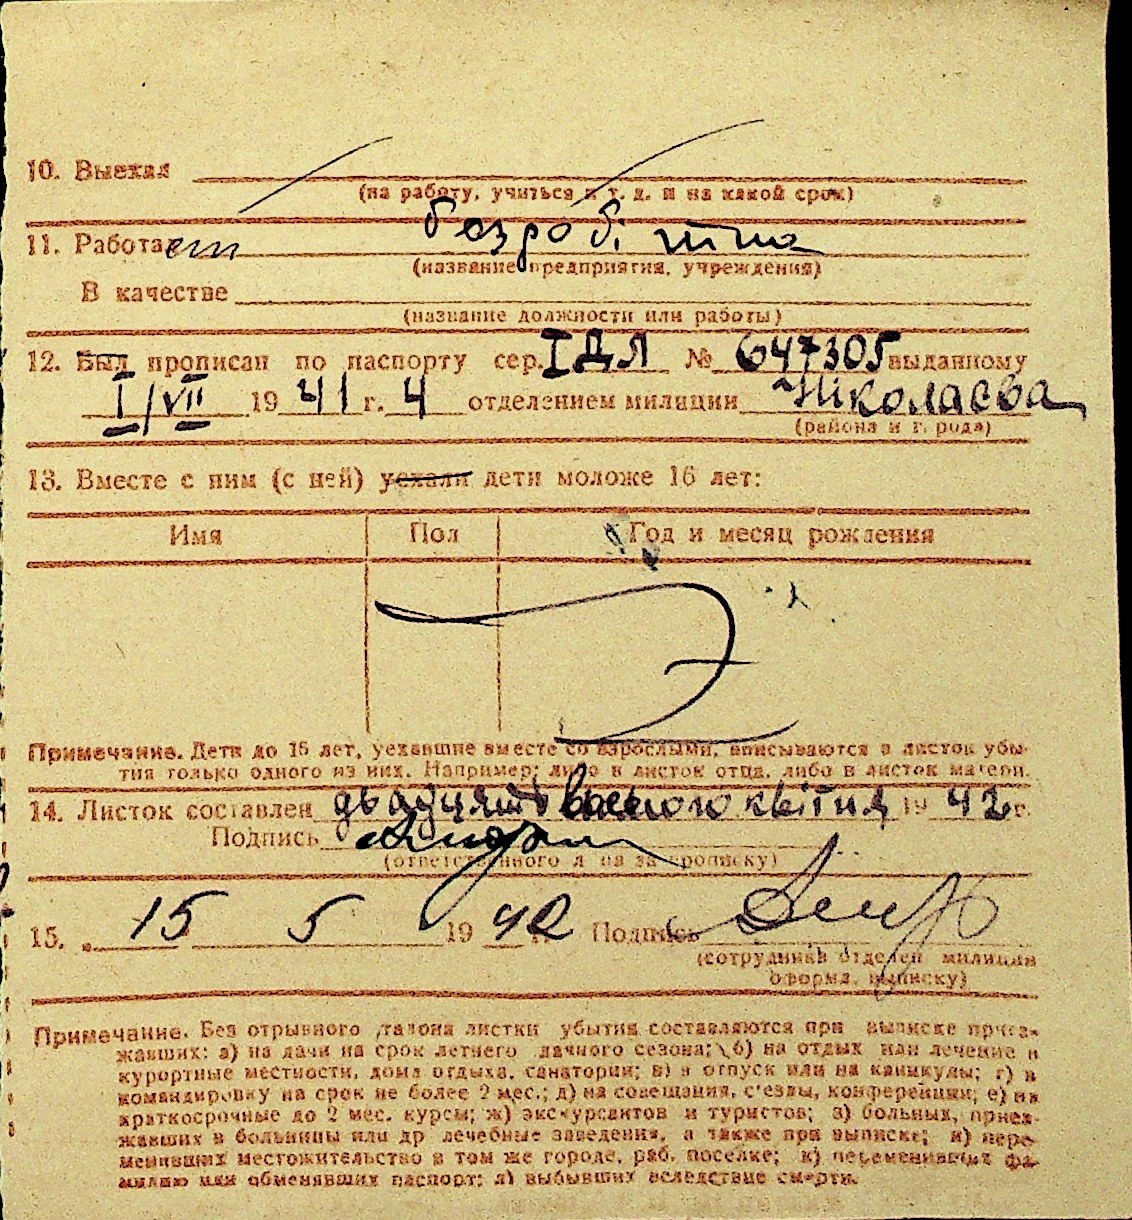 10. Выехал
(на работу, учиться и т. д. и на какой срок)
11. Работает безробітна
(название предприятия, учреждения)
В качестве
(название должности или работы)
12. Был прописан по паспорту сер. I ДЛ № 647305 выданному
I/VII 1941 г. 4 отделением милиции Ніколаєва
(района и города)
13. Вместе с ним (с ней) уехали дети моложе 16 лет:
Имя Пол Год и месяц рождения
Примечание. Дети до 15 лет, уехавшие вместе со взрослыми, вписываются в листок убы-
тия только одного из них. Например: либо в листок отца, либо в листок матери.
14. Листок составлен двадцять восьмого квітня 1942 г.
Подпись
(ответственного л на за прописку)
15. „ 15 5 1942 Подпись
(сотрудника отделен милиции
оформл. выписку)
Примечание. Без отрывного талона листки убытия составляются при выписке приез-
жавших: а) на дачи на срок летнего дачного сезона; б) на отдых или лечение в
курортные местности, дома отдыха, санатории; в) в отпуск или на каникулы; г) в
командировку на срок не более 2 мес.; д) на совещания, с'езды, конференции; е) на
краткосрочные до 2 мес. курсы; ж) экскурсантов и туристов; з) больных, приез-
жавших в больницы или др лечебные заведения, а также при выписке; и) пере-
менивших местожительство в том же городе, раб. поселке; к) переменивших фа-
милию или обменявших паспорт; л) выбывших вследствие смерти.